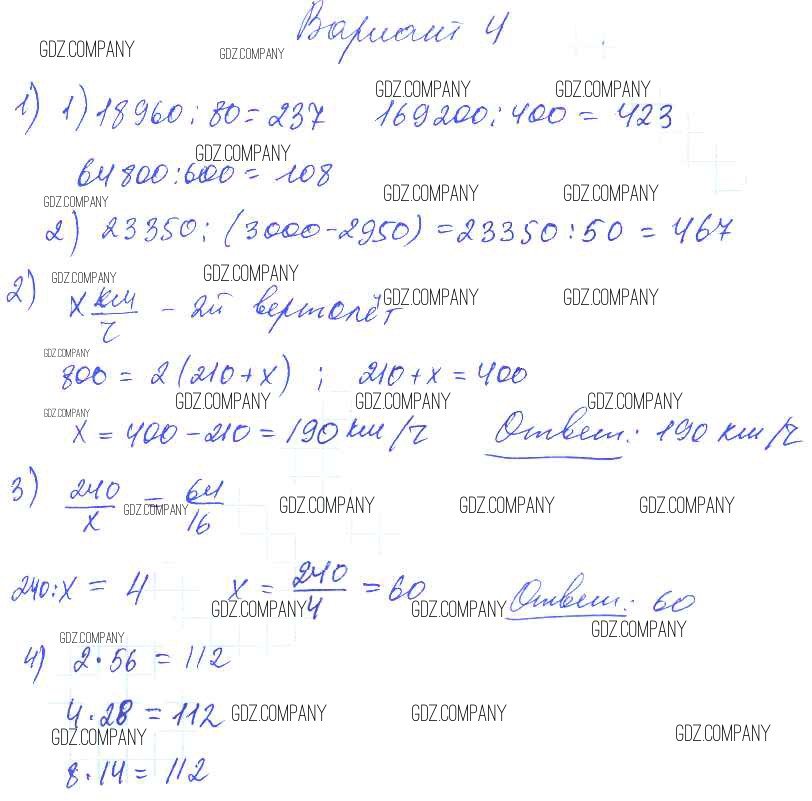 Вариант 4
GDZ.COMPANY GDZ.COMPANY
GDZ.COMPANY GDZ.COMPANY
1) 1) 18960 : 80 = 237 169200 : 400 = 423
GDZ.COMPANY
64800:600 = 108
GDZ.COMPANY GDZ.COMPANY GDZ.COMPANY
2) 23350 : (3000-2950) = 23350 : 50 = 467
GDZ.COMPANY GDZ.COMPANY
2) x км/ч - 2й вертолёт
GDZ.COMPANY GDZ.COMPANY
GDZ.COMPANY
800 = 2(210+x) ; 210+x = 400
GDZ.COMPANY GDZ.COMPANY GDZ.COMPANY
GDZ.COMPANY
x = 400-210 = 190 км/ч Ответ: 190 км/ч
3) 240/x = 64/16
GDZ.COMPANY GDZ.COMPANY GDZ.COMPANY GDZ.COMPANY
240:x = 4 x = 240/4 = 60 Ответ: 60
GDZ.COMPANY GDZ.COMPANY
GDZ.COMPANY
GDZ.COMPANY
4) 2·56 = 112
4·28 = 112
GDZ.COMPANY GDZ.COMPANY
GDZ.COMPANY GDZ.COMPANY
8·14 = 112